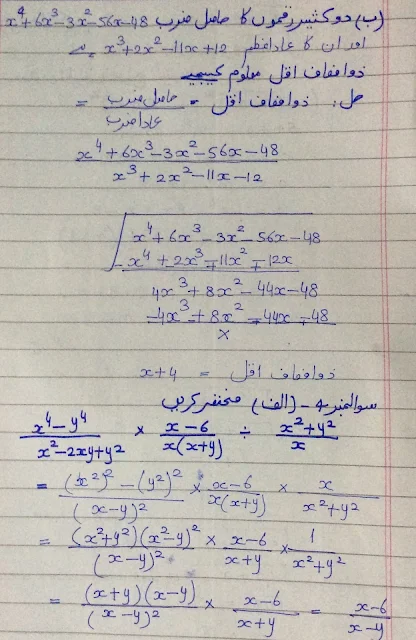 (ب) دو کثیر رقموں کا حاصل ضرب x⁴+6x³-3x²-56x-48
اور ان کا عاداعظم x³+2x²-11x+12 ہے
ذواضعاف اقل معلوم کیجیے
حل: ذواضعاف اقل = حاصل ضرب / عاداضرب =
x⁴+6x³-3x²-56x-48 / x³+2x²-11x-12
x⁴+6x³-3x²-56x-48
-x⁴+2x³∓11x²∓12x
4x³+8x²-44x-48
-4x³+8x²∓44x∓48
x
ذواضعاف اقل = x+4
سوالنمبر4-(الف) مختصر کریں
x⁴-y⁴ / x²-2xy+y² × x-6 / x(x+y) ÷ x²+y² / x
= (x²)²-(y²)² / (x-y)² × x-6 / x(x+y) × x / x²+y²
= (x²+y²)(x²-y)² / (x-y)² × x-6 / x+y × 1 / x²+y²
= (x+y)(x-y) / (x-y)² × x-6 / x+y = x-6 / x-y